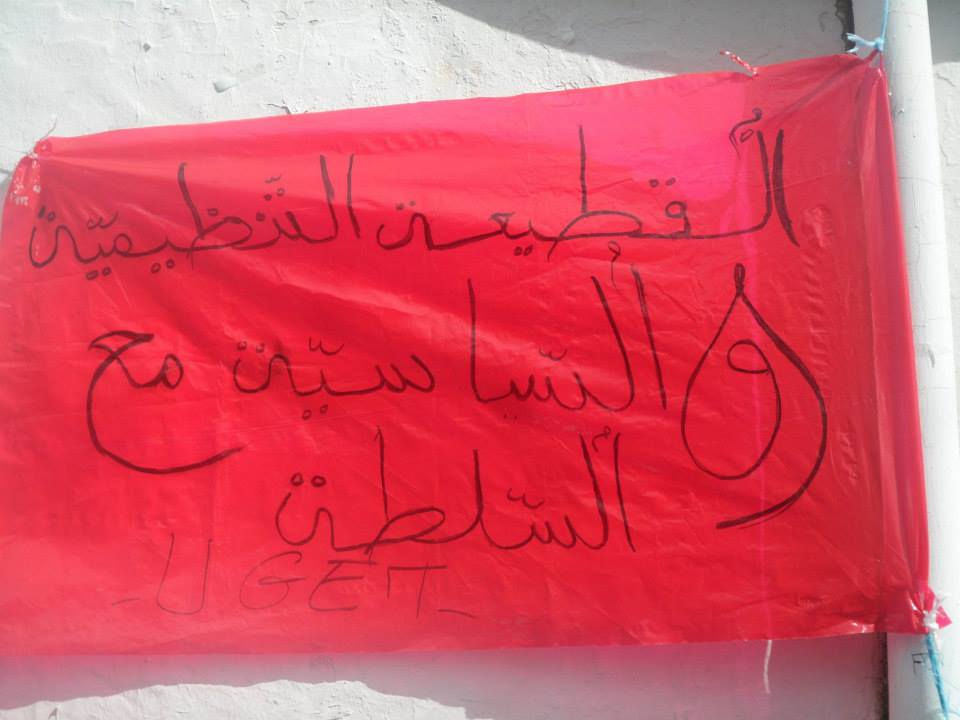 القطيعة التنظيميّة
و السّياسيّة مع
السّلطة
- UGET -